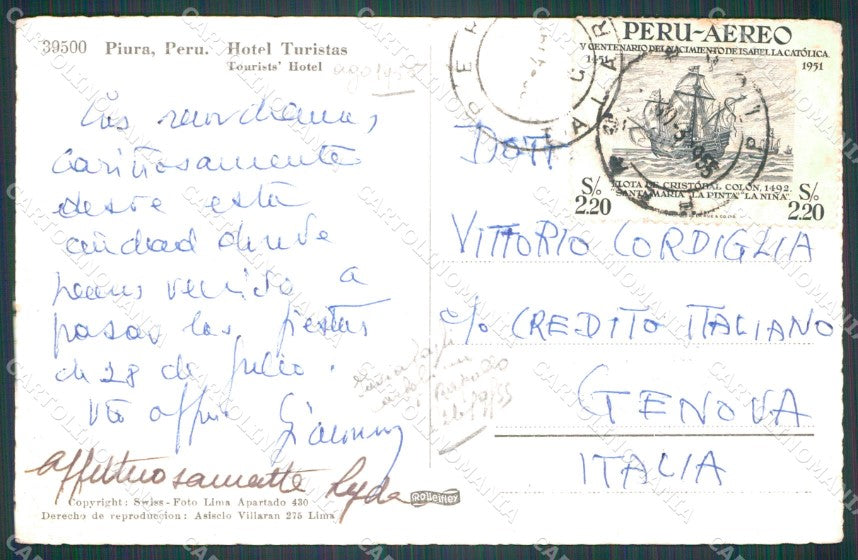 39500 Piura, Peru. Hotel Turistas
Tourists' Hotel
ago 195
Los recordamos,
cariñosamente
desde esta
ciudad donde
hemos venido a
pasar las fiestas
de 28 de Julio.
affettuosamente Lyda
Copyright: Swiss-Foto Lima Apartado 430
Derecho de reproducion: Asisclo Villaran 275 Lima
Rolleiflex
PERU-AEREO
V CENTENARIO DEL NACIMIENTO DE ISABEL LA CATÓLICA
1451 1951
FLOTA DE CRISTÓBAL COLÓN, 1492.
SANTA MARIA "LA PINTA" "LA NIÑA"
S/o 2.20 S/o 2.20
DOTT
VITTORIO CORDIGLIA
c/o CREDITO ITALIANO
GENOVA
ITALIA
CARTOLINOMANIA